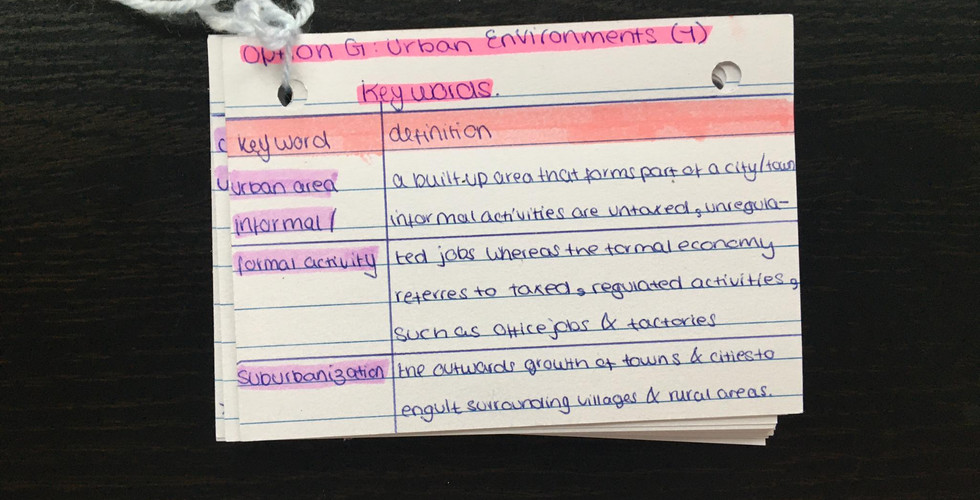 Option G: Urban Environments (4)
Key words.
Key word definition
urban area a built-up area that forms part of a city/town
informal/ informal activities are untaxed, unregula-
formal activity ted jobs whereas the formal economy
referres to taxed, regulated activities,
such as office jobs & factories
suburbanization the outwards growth of towns & cities to
engulf surrounding villages & rural areas.